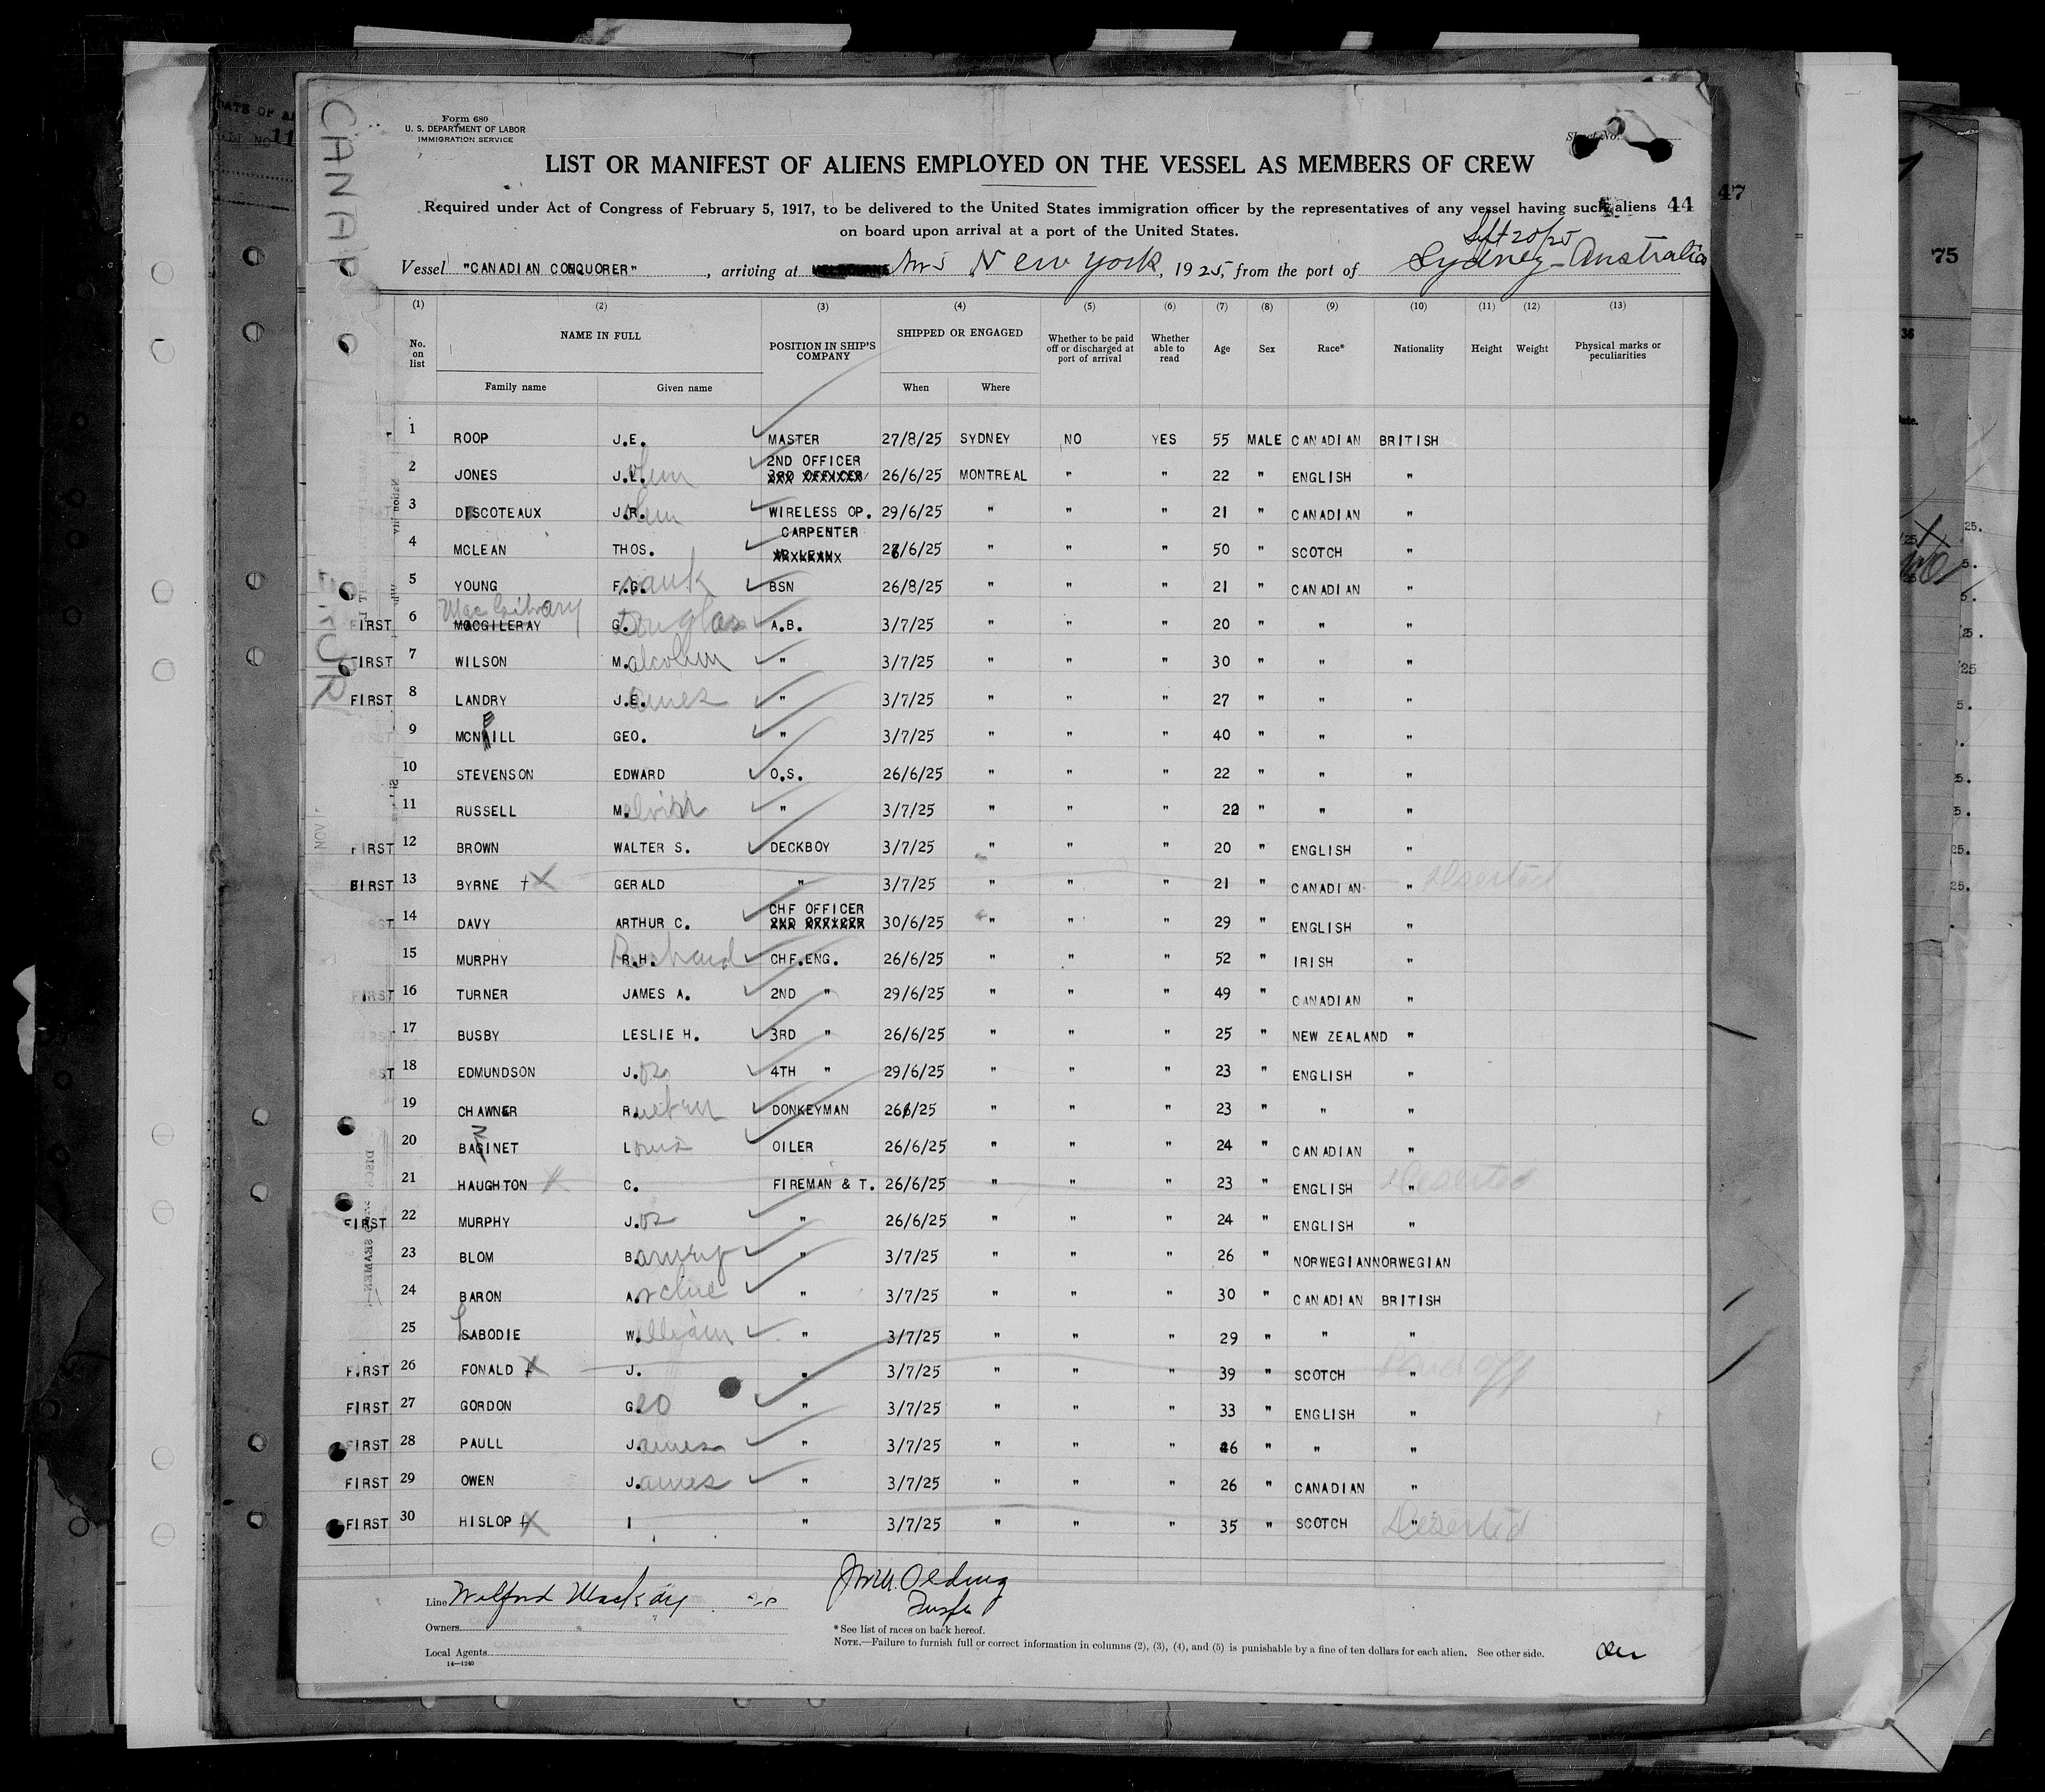 Form 680
U. S. DEPARTMENT OF LABOR
IMMIGRATION SERVICE
Sheet No.
LIST OR MANIFEST OF ALIENS EMPLOYED ON THE VESSEL AS MEMBERS OF CREW
Required under Act of Congress of February 5, 1917, to be delivered to the United States immigration officer by the representatives of any vessel having such aliens 44 47
on board upon arrival at a port of the United States.
Sept 20/25
Vessel "CANADIAN CONQUORER", arriving at MELBOURNE New York, 1925, from the port of Sydney - Australia
(1) (2) (3) (4) (5) (6) (7) (8) (9) (10) (11) (12) (13)
No. on list NAME IN FULL Family name Given name POSITION IN SHIP'S COMPANY SHIPPED OR ENGAGED When Where Whether to be paid off or discharged at port of arrival Whether able to read Age Sex Race* Nationality Height Weight Physical marks or peculiarities
1 ROOP J.E. MASTER 27/8/25 SYDNEY NO YES 55 MALE CANADIAN BRITISH
2 JONES J. 2ND OFFICER 3RD OFFICER 26/6/25 MONTREAL " " 22 " ENGLISH "
3 DESCOTEAUX J.R. WIRELESS OP. 29/6/25 " " " 21 " CANADIAN "
4 MCLEAN THOS. CARPENTER /6/25 " " " 50 " SCOTCH "
5 YOUNG F.G. Frank BSN 26/8/25 " " " 21 " CANADIAN "
FIRST 6 MacGilvary MACGILERAY G. Douglas A.B. 3/7/25 " " " 20 " " "
FIRST 7 WILSON M.alcolum " 3/7/25 " " " 30 " " "
FIRST 8 LANDRY J.E. ames " 3/7/25 " " " 27 " " "
9 MCNEILL GEO. " 3/7/25 " " " 40 " " "
10 STEVENSON EDWARD O.S. 26/6/25 " " " 22 " " "
11 RUSSELL M. " 3/7/25 " " " 22 " " "
FIRST 12 BROWN WALTER S. DECKBOY 3/7/25 " " " 20 " ENGLISH "
FIRST 13 BYRNE GERALD " 3/7/25 " " " 21 " CANADIAN " Deserted
14 DAVY ARTHUR C. CHF OFFICER 2ND OFFICER 30/6/25 " " " 29 " ENGLISH "
15 MURPHY R.H. Richard CHF.ENG. 26/6/25 " " " 52 " IRISH "
FIRST 16 TURNER JAMES A. 2ND " 29/6/25 " " " 49 " CANADIAN "
FIRST 17 BUSBY LESLIE H. 3RD " 26/6/25 " " " 25 " NEW ZEALAND "
FIRST 18 EDMUNDSON J.os 4TH " 29/6/25 " " " 23 " ENGLISH "
19 CHAWNER R.ueben DONKEYMAN 266/25 " " " 23 " " "
20 BAZINET Louis OILER 26/6/25 " " " 24 " CANADIAN "
21 HAUGHTON C. FIREMAN & T. 26/6/25 " " " 23 " ENGLISH " Deserted
FIRST 22 MURPHY J.os " 26/6/25 " " " 24 " ENGLISH "
23 BLOM B.arney " 3/7/25 " " " 26 " NORWEGIAN NORWEGIAN
24 BARON A.rchie " 3/7/25 " " " 30 " CANADIAN BRITISH
25 SABODIE W.illiam " 3/7/25 " " " 29 " " "
FIRST 26 FONALD J. " 3/7/25 " " " 39 " SCOTCH " Paid off
FIRST 27 GORDON G.eo " 3/7/25 " " " 33 " ENGLISH "
FIRST 28 PAULL J.ames " 3/7/25 " " " 46 " " "
FIRST 29 OWEN J.ames " 3/7/25 " " " 26 " CANADIAN "
FIRST 30 HISLOP I " 3/7/25 " " " 35 " SCOTCH " Deserted
Line Wilford Mackay
Owners
Local Agents
14—1240
Olding
Purser
* See list of races on back hereof.
NOTE.—Failure to furnish full or correct information in columns (2), (3), (4), and (5) is punishable by a fine of ten dollars for each alien. See other side.
75